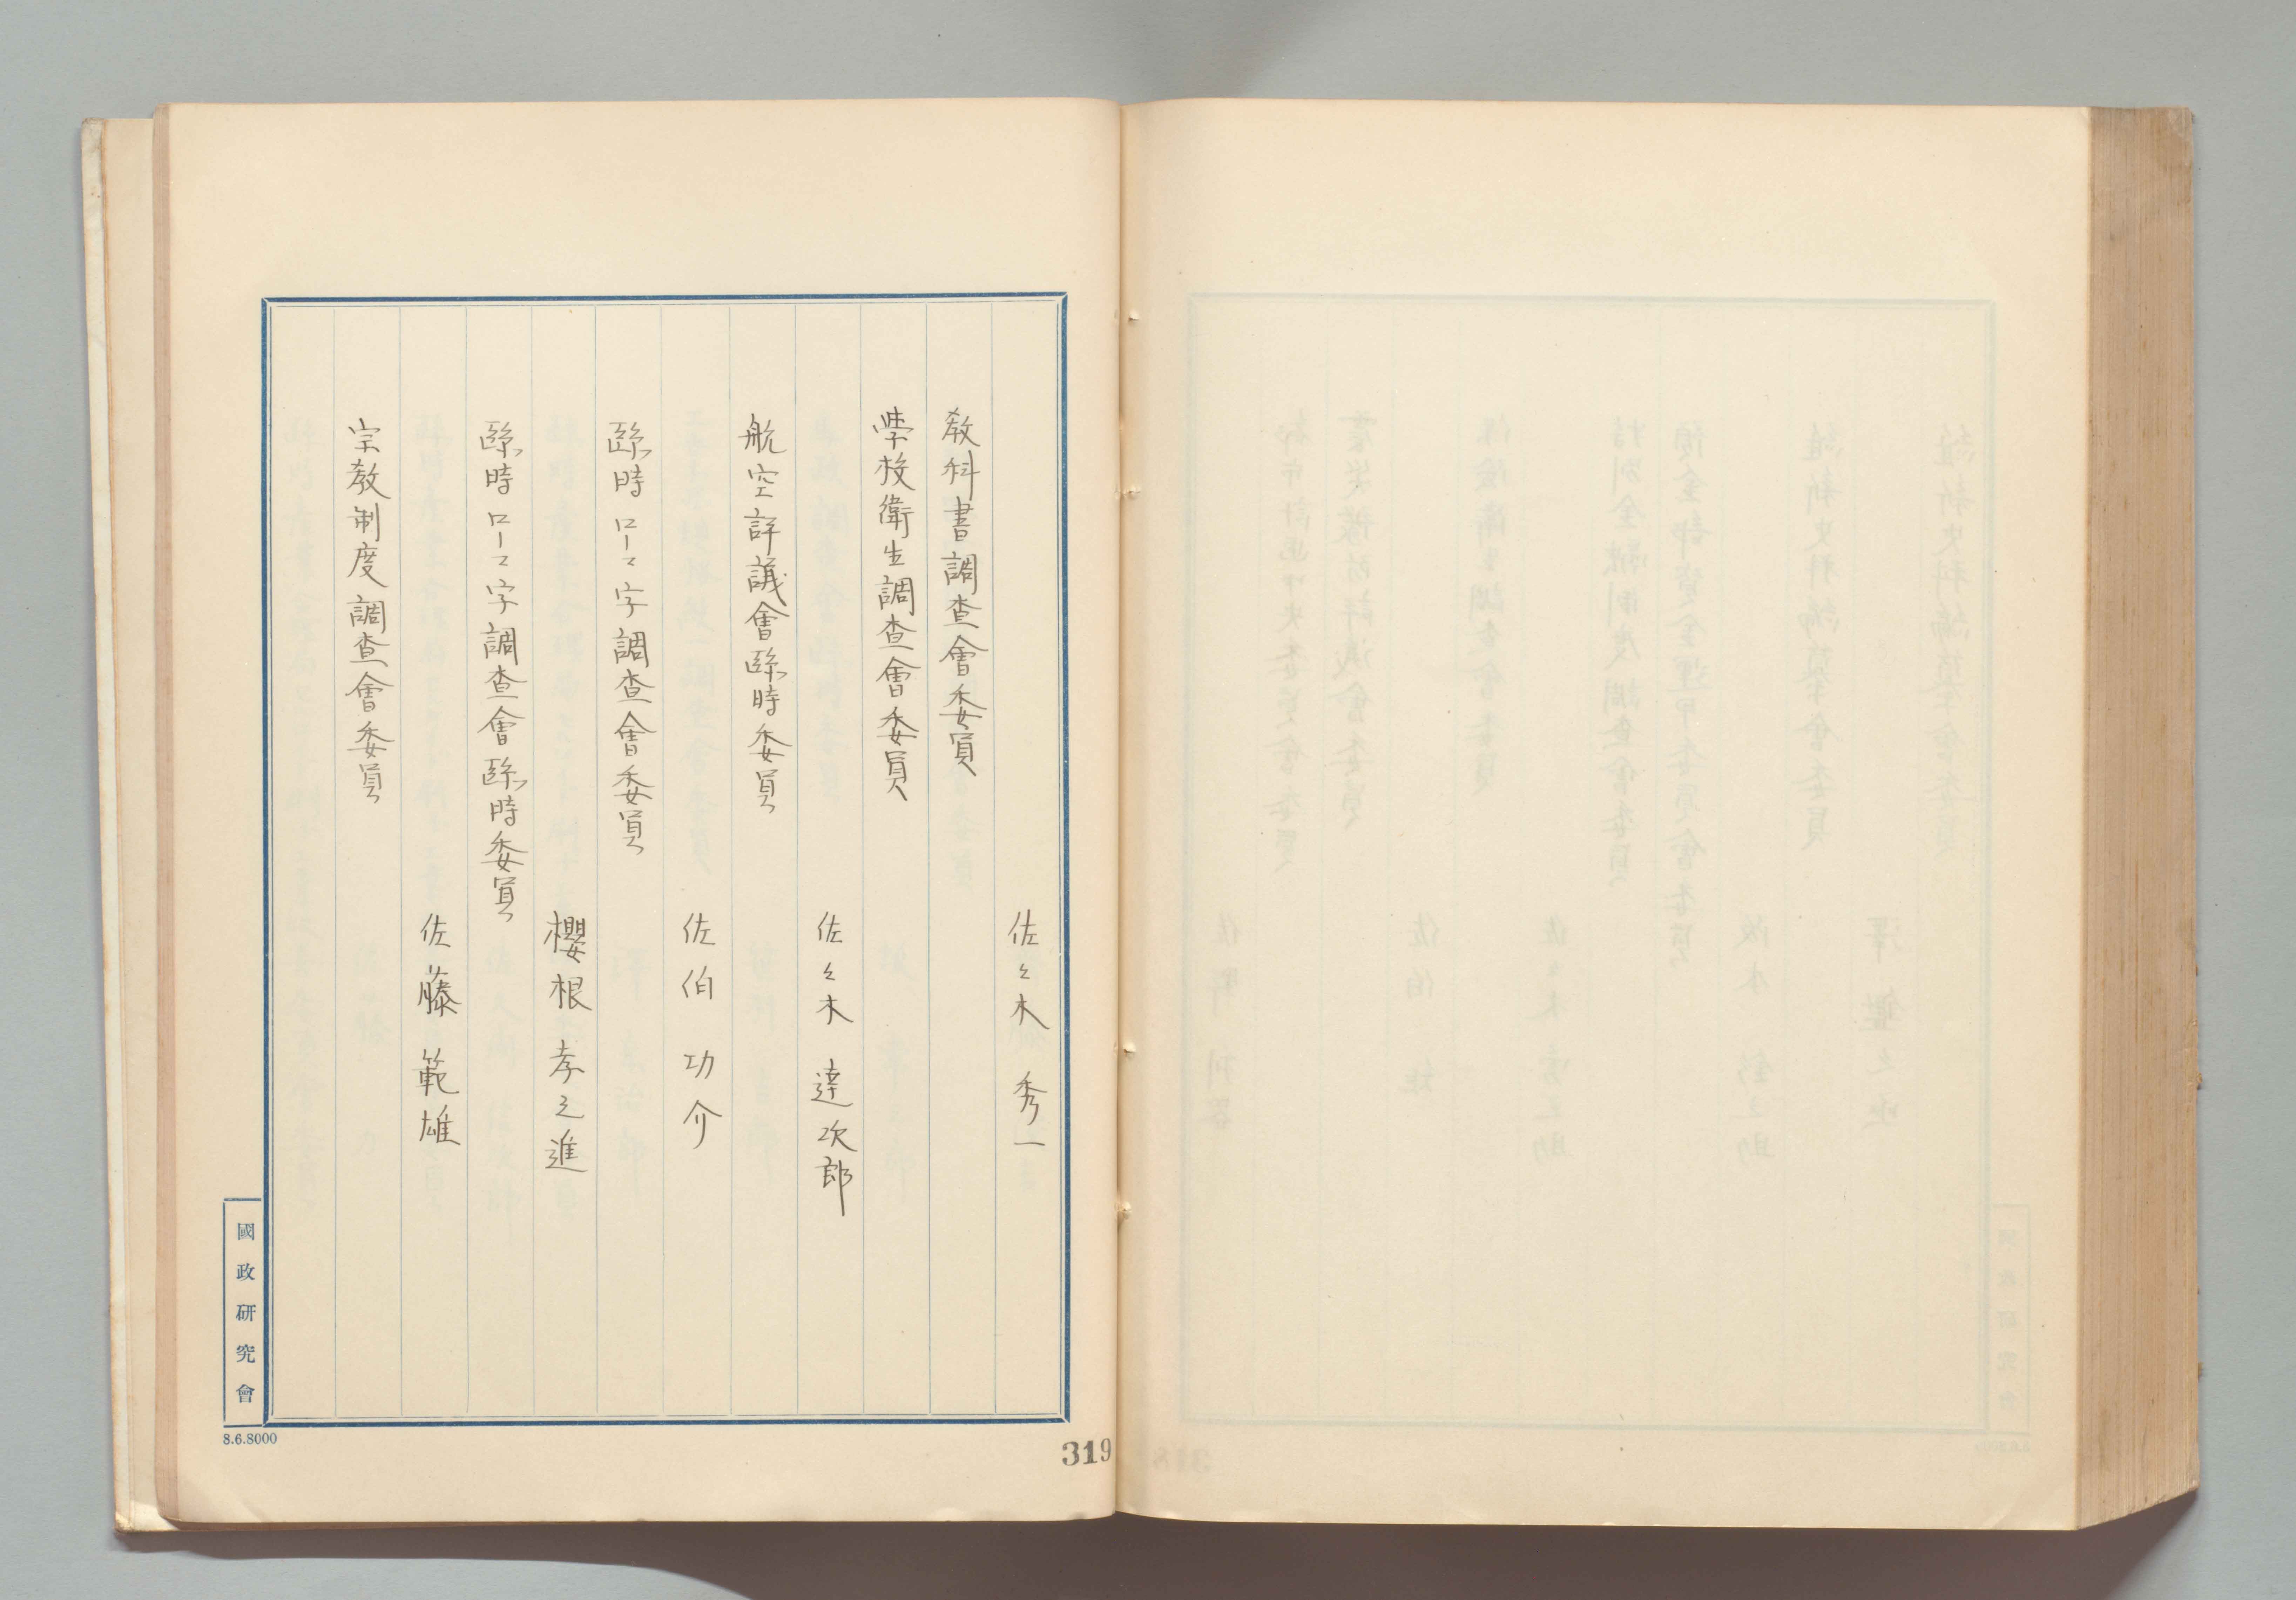 佐々木秀一
教科書調査會委員
学校衛生調査會委員
佐々木達次郎
航空評議會臨時委員
佐伯功介
臨時ローマ字調査會委員
櫻根孝之進
臨時ローマ字調査會臨時委員
佐藤範雄
宗教制度調査會委員
國政研究會
8.6.8000
319